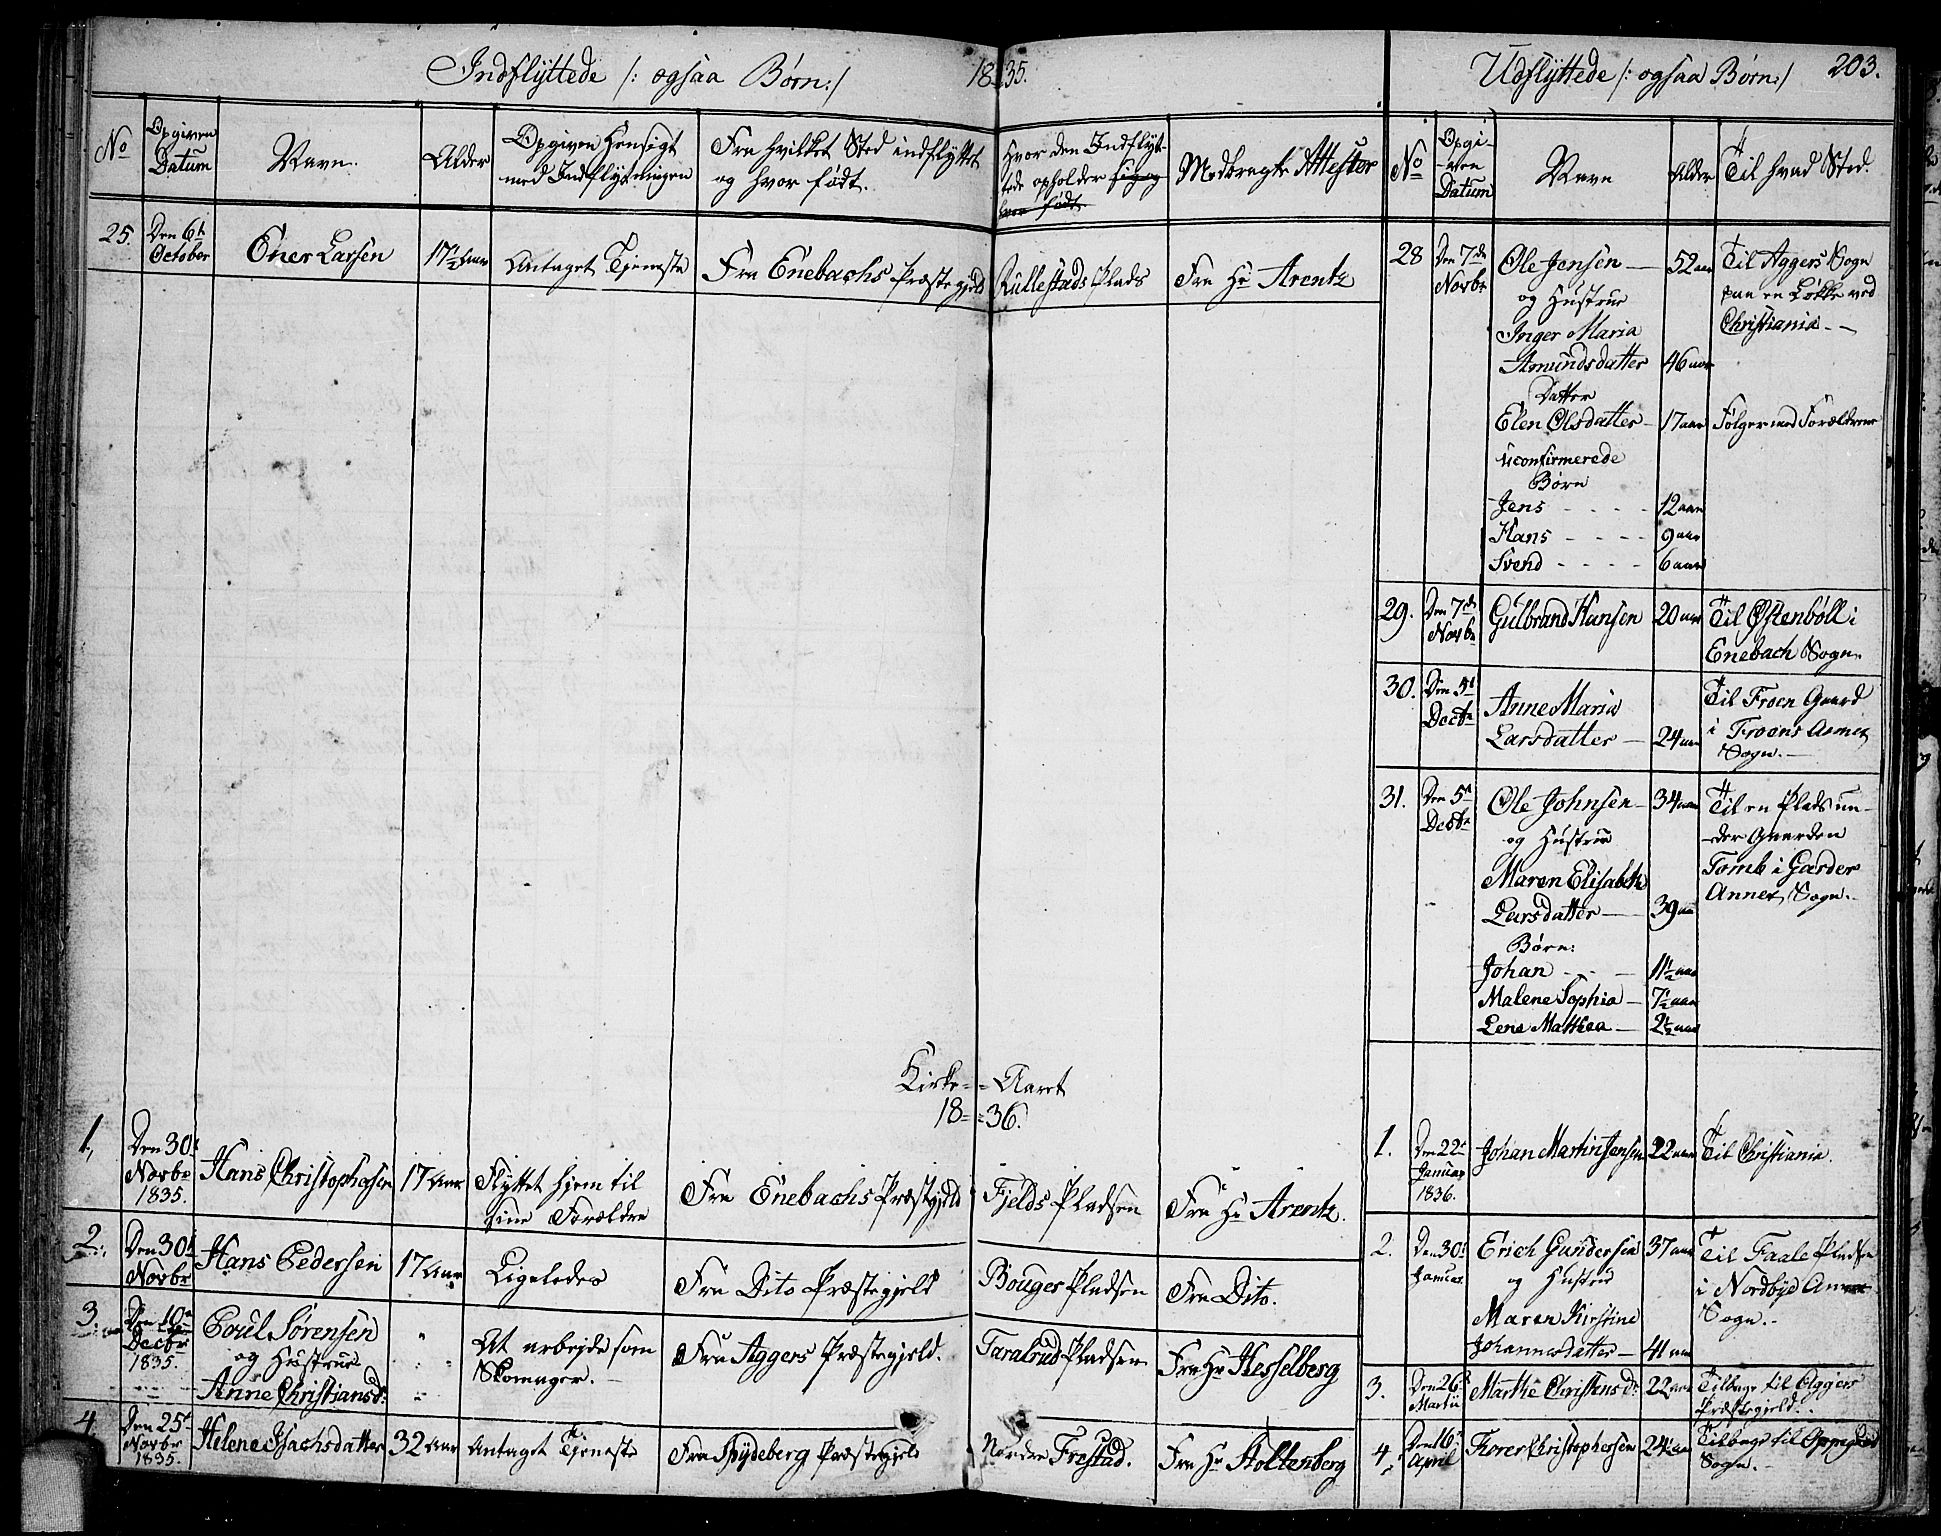 Indflyttede /: ogsaa Børn:/ 1835.
No
Opgiven Datum
Navn.
Alder
Opgiven Hensigt med Indflytningen
Fra hvilket Sted indflyttet og hvor født.
Hvor den Indflyttede opholder sig og hvor født
Medbragte Attester
25. Den 6t October
Ener Larsen
17½ Aar
Antaget Tjeneste
Fra Enebachs Præstegjeld
Rullestads Plads
Fra Hr Arentz
Kirke-Aaret
18 36.
1. Den 30t Novbr 1835.
Hans Christophersen
17 Aar
Flyttet hjem til sine Forældre
Fra Enebachs Præstegjeld
Fjelds Pladsen
Fra Hr Arentz.
2. Den 30t Novbr
Hans Pedersen
17 Aar
Ligeledes
Fra Dito Præstegjeld
Bouger Pladsen
Fra Dito.
3. Den 10n Decbr 1835.
Poul Sørensen
og Hustrue
Anne Christiansd:
At arbejde som Skomager.
Fra Aggers Præstegjeld.
Taralrud Pladsen
Fra Hr Hesselberg
4 Den 25t Novbr 1835.
Helene Isachsdatter
32 Aar
Antaget Tjeneste
Fra Spydeberg Præstegjeld
Nordre Frestad.
Fra Hr Stoltenberg
Udflyttede /: ogsaa Børn:/ 203.
No
Opgiven Datum
Navn
Alder
Til hvad Sted.
28 Den 7de Novbr
Ole Jensen 52 aar
Til Aggers Sogn
paa en Løkke ved
Christiania.
og Hustrue
Inger Maria
Amundsdatter 46 aar
Datter
Elen Olsdatter 17 aar
Følger med Forældrene
uconfirmerede
Børn
Jens 12 aar
Hans 9 aar
Svend 6 aar
29. Den 7de Novbr
Gulbrand Hansen 20 aar
Til Østenbøll i
Enebach Sogn.
30. Den 5t Decbr
Anne Maria
Larsdatter 24 aar
Til Froen Gaard
i Froens Annex
Sogn.
31. Den 5t Decbr
Ole Johnsen 34 aar
Til en Plads un-
-der Gaarden
Tomb i Garder
Annex Sogn.
og Hustrue
Maren Elisabeth
Larsdatter 39 aar
Børn:
Johan 11½ aar
Malene Sophia 7½ aar
Lene Mathea 2½ aar
1. Den 22t Januar 1836.
Johan Martin Jensen 22 aar
Til Christiania.
2. Den 30t Januar
Erich Gundersen 37 aar
Til Faale Pladsen
i Nordbye Annex
Sogn.
og Hustrue
Maren Kirstine
Johannesdatter 41 aar
3. Den 26t Martii
Marthe Christensd: 22 aar
Tilbage til Aggers
Præstegjeld.
4. Den 16t April
Thorer Christophersen 24 aar
Tilbage til Oppegård
Sogn.